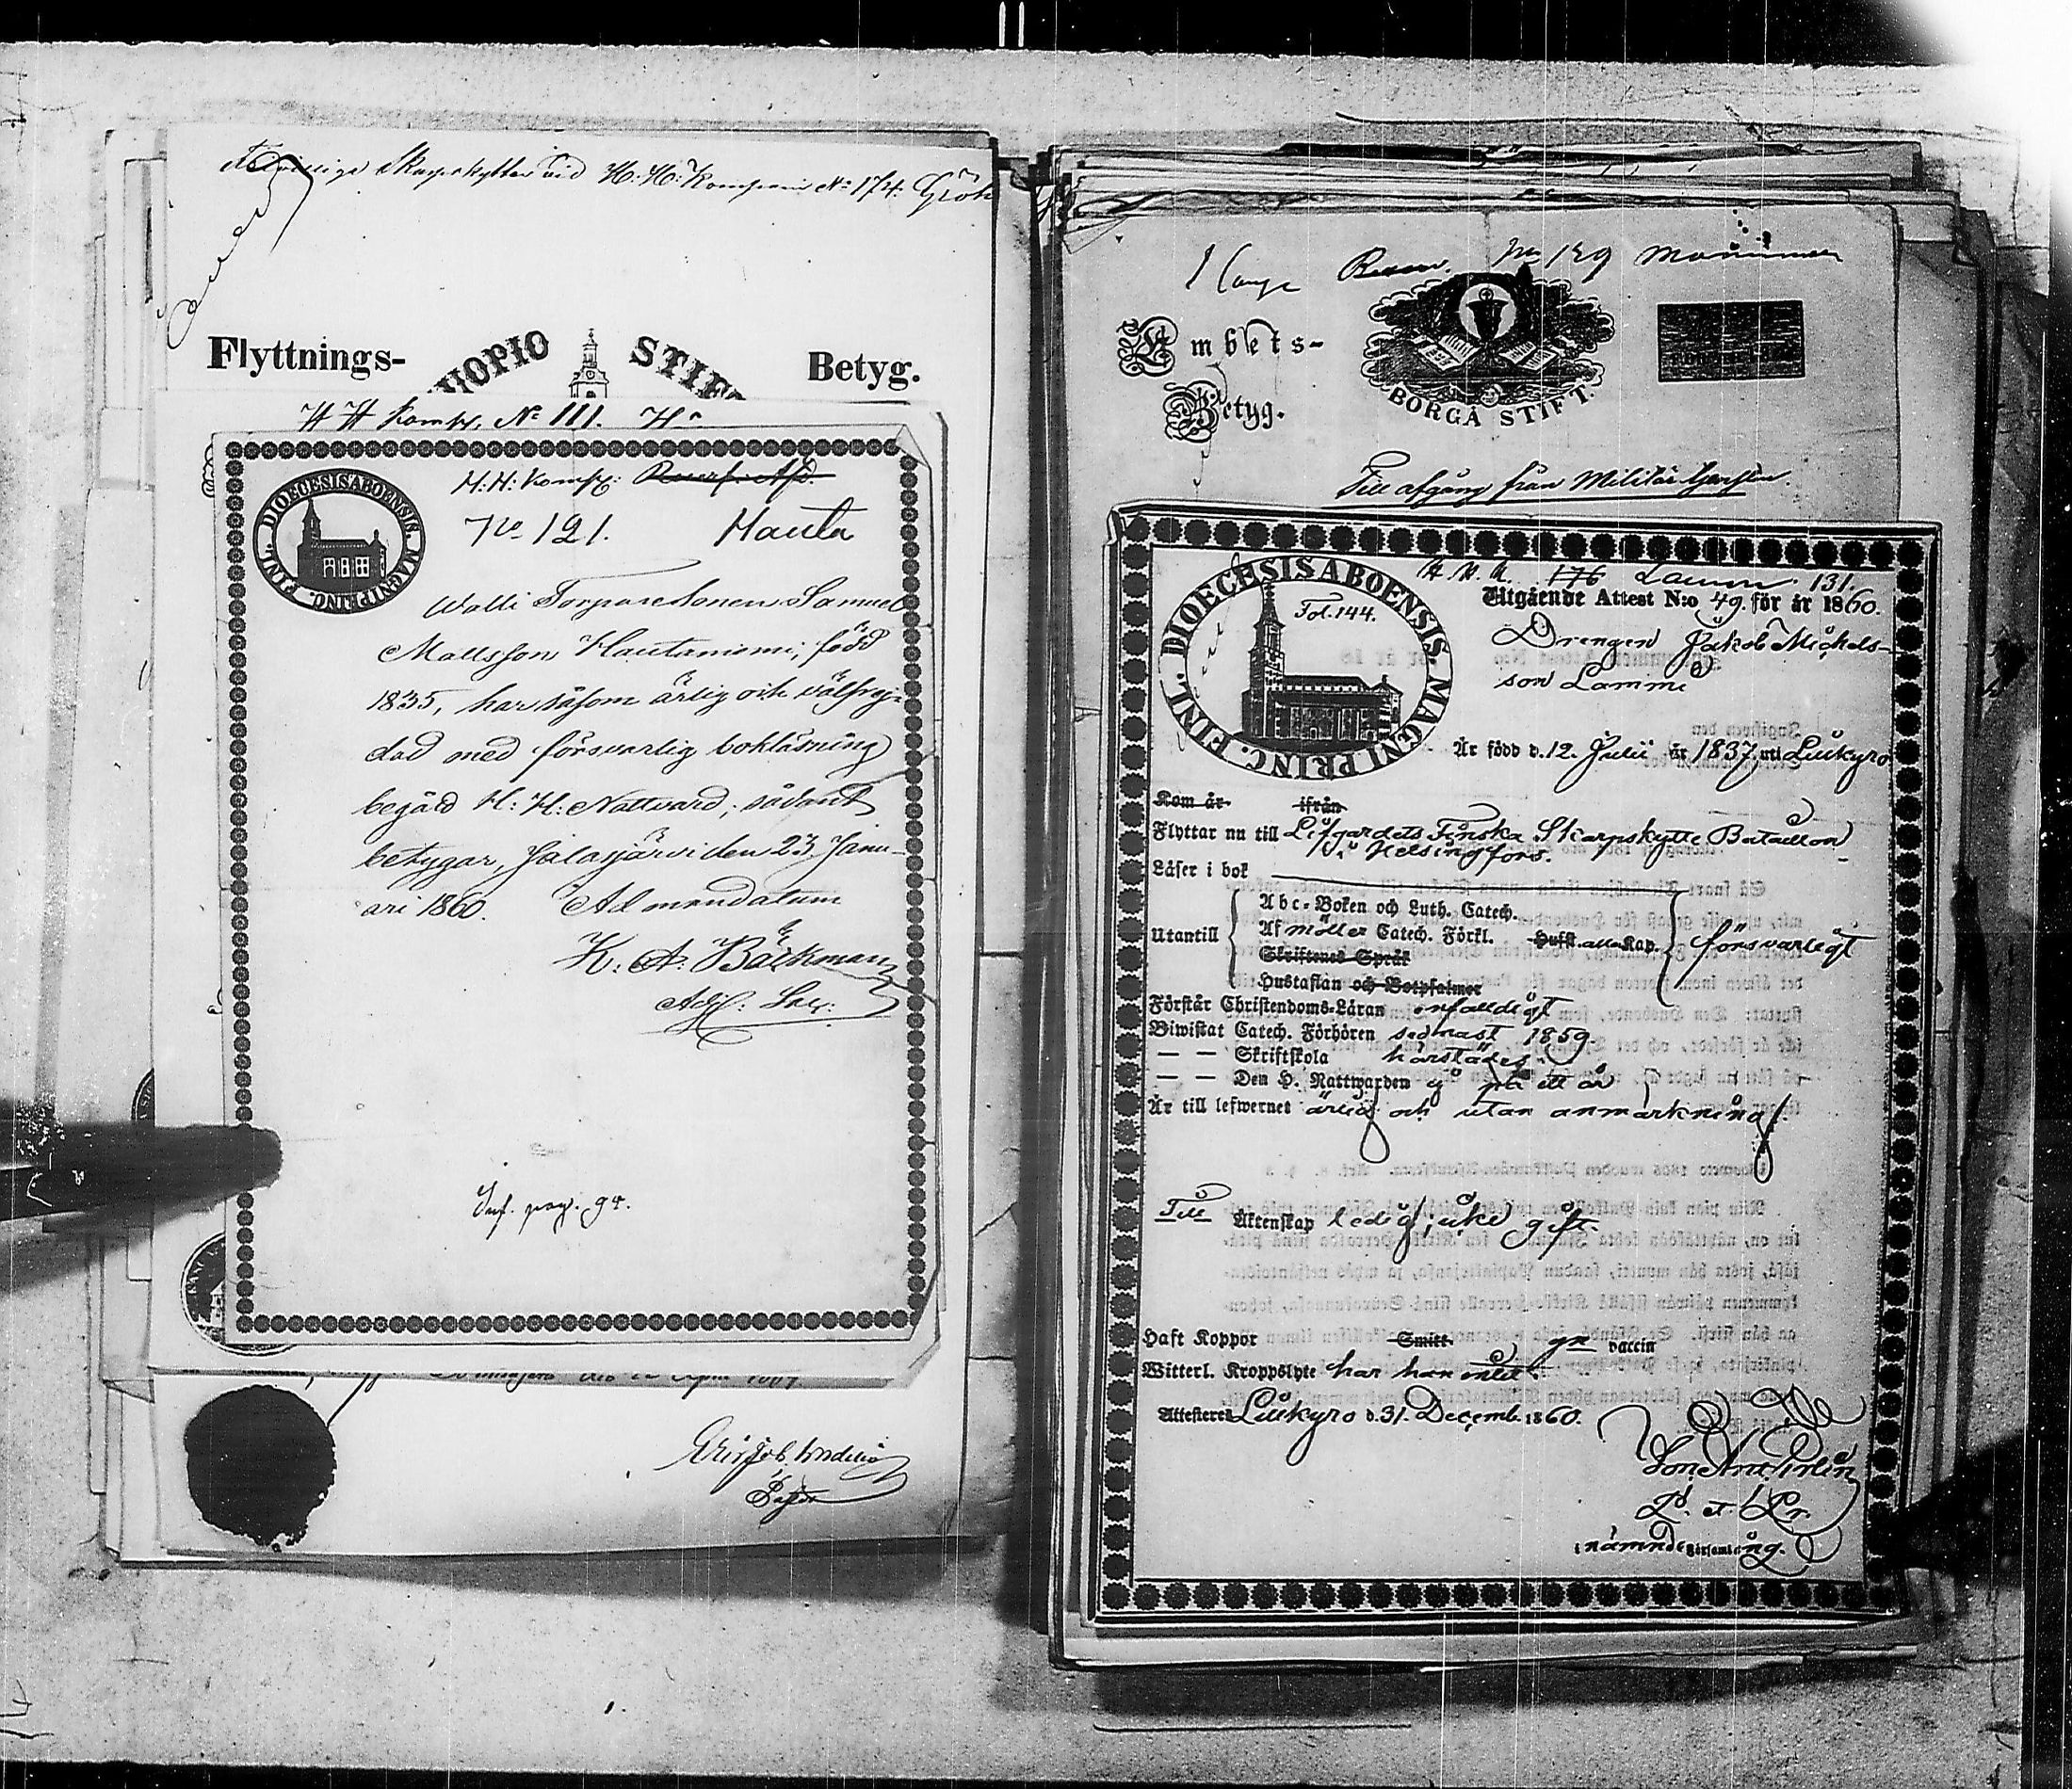 Skarpskytten vid H. H. Kompani No 174. Gröh
Flyttnings-
KUOPIO STIFT
Betyg.
H H Komp. No 111.
DIOECESIS ABOENSIS MAGNI PRINC. FINL.
H: H: Komp: Reserf. Afd.
No 121. Hauta
Walli Torparesonen Samuel
Mattsson Hautaniemi, född
1835, har såsom ärlig och välfrej-
dad med försvarlig bokläsning
begärd H: H: Nattvard; sådant
betygar, Jalasjärvi den 23 Janu-
ari 1860. Ad mandatum
K: A: Bäckman
Adj: Sac:
Inf. pag. 94.
Pastor
No 129
Embets-
Betyg.
BORGÅ STIFT.
Till afgång från Militär tjensten.
DIOECESIS ABOENSIS MAGNI PRINC. FINL.
Fol. 144.
176 Lammi 131
Utgående Attest N:o 49. för år 1860.
Drengen Jakob Michels-
son Lammi
Är född d. 12. Julii år 1837. uti Lillkyro
Kom år ifrån
Flyttar nu till Lifgardets Finska Skarpskytte Bataillon
i Helsingfors.
Läser i bok
Utantill
Abc-Boken och Luth. Catech.
Af möller Catech. Förkl. Hufst. alla Kap.
försvarligt
Skriftenes Språk
Hustaflan och Botpsalmer
Förstår Christendoms-Läran enfaldigt
Biwistat Catech. Förhören sednast 1859.
— — Skriftskola härstädes
— — Den H. Nattwarden ej på ett år
Är till lefwernet ärlig och utan anmärkning.
Till Äktenskap ledig; icke gift.
Haft Koppor Smitt vaccin
Witterl. Kroppslyte har han intet.
Attesterar Lillkyro d. 31. Decemb. 1860.
P. et Pr.
i nämnde Församling.